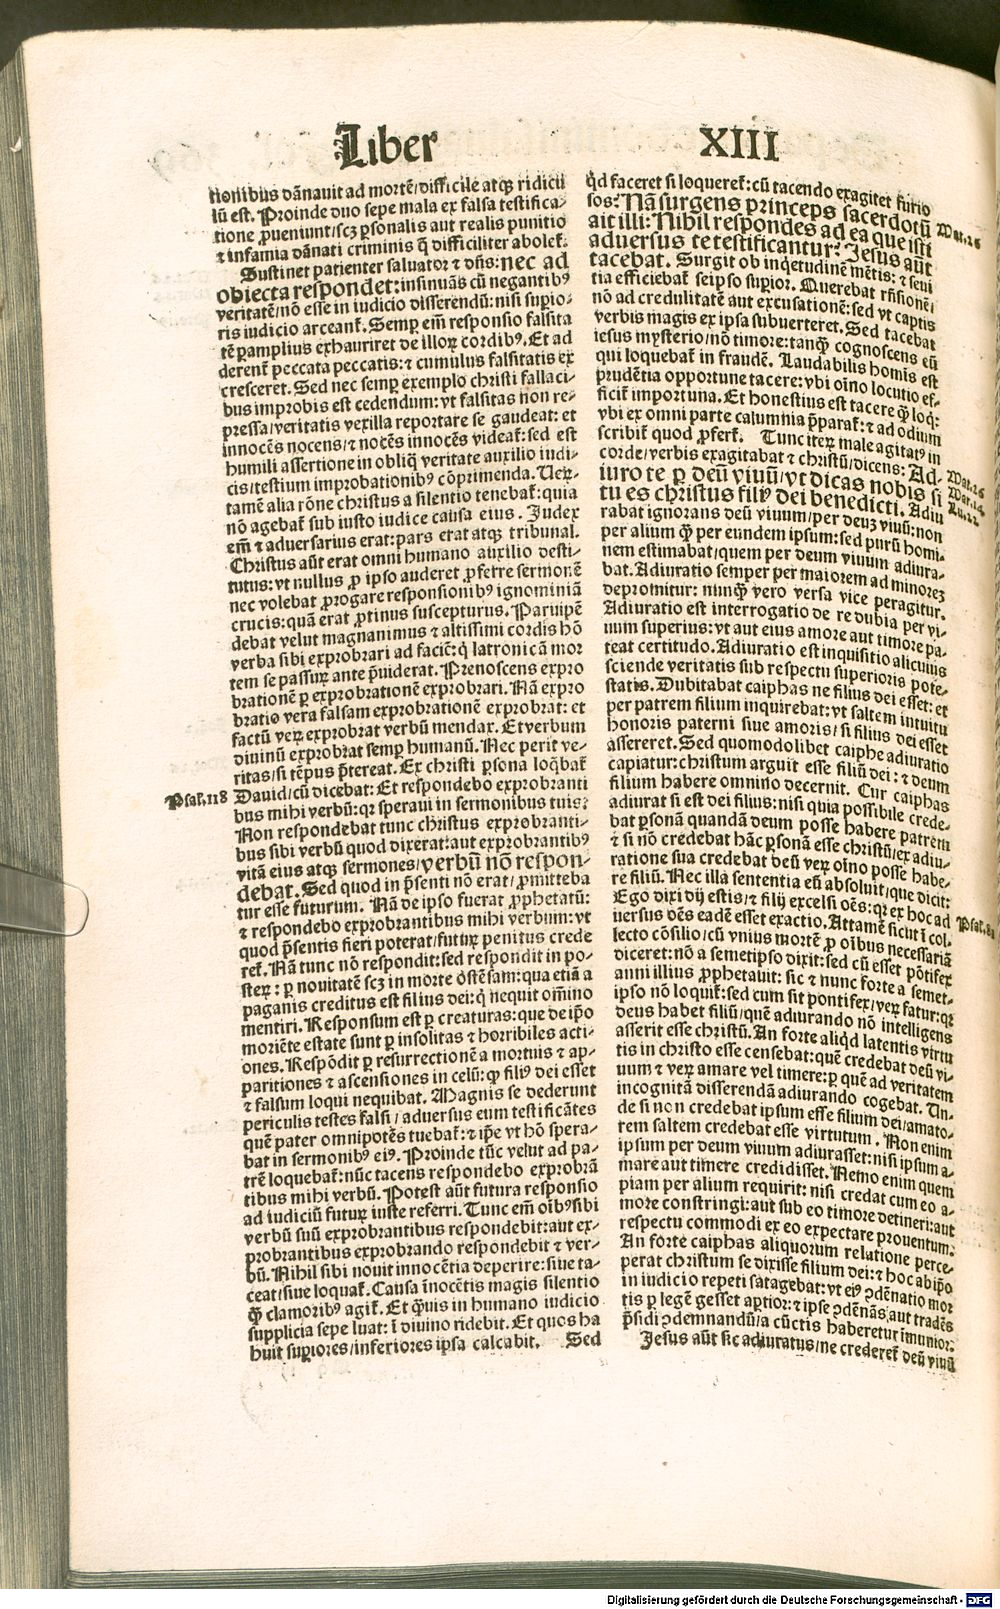 Liber XIII
nonibus dānauit ad mortē/difficile atqꝫ ridicu
lū est. Proinde duo sepe mala ex falsa testifica⸗
tione ꝓueniunt/scꝫ ꝑsonalis aut realis punitio
⁊ infamia dānati criminis q̄ difficiliter abolet̄.
Sustinet patienter saluator ⁊ dn̄s: nec ad
obiecta respondet: insinuās cū negantibꝰ
veritatē/nō esse in iudicio disserendū: nisi suꝑio⸗
ris iudicio arceant̄. Semꝑ em̄ responsio falsita
tē ꝑamplius exhauriret de illoꝝ cordibꝰ. Et ad
derent̄ peccata peccatis: ⁊ cumulus falsitatis ex
cresceret. Sed nec semꝑ exemplo christi fallaci⸗
bus improbis est cedendum: vt falsitas non re⸗
pressa/veritatis vexilla reportare se gaudeat: et
innocēs nocens/⁊ nocēs innocēs videat̄: sed est
humili assertione in obliq̄ veritate auxilio iudi⸗
cis/testium improbationibꝰ cōprimenda. Ueꝝ⸗
tamē alia rōne christus a silentio tenebat̄: quia
nō agebat̄ sub iusto iudice causa eius. Iudex
em̄ ⁊ aduersarius erat: pars erat atqꝫ tribunal.
Christus aūt erat omni humano auxilio desti⸗
tutus: vt nullus ꝓ ipso auderet ꝓferre sermonē
nec volebat ꝓrogare responsionibꝰ ignominiā
crucis: quā erat ꝓtinus suscepturus. Paruipē
debat velut magnanimus ⁊ altissimi cordis hō
verba sibi exprobrari ad faciē: q̇ latronicā mor
tem se passuꝝ ante p̄uiderat. Prenoscens expro
brationē ꝑ exprobrationē exprobrari. Nā expro
bratio vera falsam exprobrationē exprobrat: et
factū veꝝ exprobrat verbū mendax. Et verbum
diuinū exprobrat semꝑ humanū. Nec perit ve⸗
ritas/si tēpus p̄tereat. Ex christi ꝑsona loq̄bat̄
Psal.118 Dauid/cū dicebat: Et respondebo exprobranti
bus mihi verbū: qꝛ speraui in sermonibus tuis?
Non respondebat tunc christus exprobranti⸗
bus sibi verbū quod dixerat: aut exprobrantibꝰ
vitā eius atqꝫ sermones/verbū nō respon⸗
debat. Sed quod in p̄senti nō erat/ꝓmitteba
tur esse futurum. Nā de ipso fuerat ꝓphetatū:
⁊ respondebo exprobrantibus mihi verbum: vt
quod p̄sentis fieri poterat/futuꝝ penitus crede
ret̄. Nā tunc nō respondit: sed respondit in po⸗
steꝝ: ꝑ nouitatē scꝫ in morte ostēsam: qua etiā a
paganis creditus est filius dei: q̇ nequit om̄ino
mentiri. Responsum est ꝑ creaturas: que de ip̄o
moriēte estate sunt ꝑ insolitas ⁊ horribiles acti⸗
ones. Respōdit ꝑ resurrectionē a mortuis ⁊ ap⸗
paritiones ⁊ ascensiones in celū: ꝙ filiꝰ dei esset
⁊ falsum loqui nequibat. Magnis se dederunt
periculis testes falsi/aduersus eum testificātes
quē pater omnipotēs tuebat̄: ⁊ ip̄e vt hō spera⸗
bat in sermonibꝰ eiꝰ. Proinde tūc velut ad pa⸗
trē loquebat̄: nūc tacens respondebo exprobrā
tibus mihi verbū. Potest aūt futura responsio
ad iudiciū futuꝝ iuste referri. Tunc em̄ oībꝰ sibi
verbū suū exprobrantibus respondebit: aut ex⸗
probrantibus exprobrando respondebit ⁊ ver⸗
bū. Nihil sibi nouit innocētia deperire: siue ta⸗
ceat/siue loquat̄. Causa īnocētis magis silentio
ꝙ̄ clamoribꝰ agit̄. Et q̄uis in humano iudicio
supplicia sepe luat: ī diuino ridebit. Et quos ha
buit suꝑiores/inferiores ipsa calcabit. Sed
qd̄ faceret si loqueret̄: cū tacendo exagitet furio
sos: Nā surgens princeps sacerdotū
ait illi: Nihil respondes ad ea que isti Mat.26
aduersus te testificantur? Jesus aūt
tacebat. Surgit ob inq̇etudinē mētis: ⁊ seui
tia efficiebat̄ seipso suꝑior. Querebat rn̄sionē/
nō ad credulitatē aut excusationē: sed vt captis
verbis magis ex ipsa subuerteret. Sed tacebat
iesus mysterio/nō timore: tanqꝫ cognoscens eū
qui loquebat̄ in fraudē. Laudabilis homīs est
prudētia opportune tacere: vbi oīno locutio ef⸗
ficit̄ importuna. Et honestius est tacere ꝙ̄ loq̇:
vbi ex omni parte calumnia p̄parat̄: ⁊ ad odium
scribit̄ quod ꝓfert̄. Tunc iteꝝ male agitatꝰ in
corde/verbis exagitabat ⁊ christū/dicens: Ad⸗
iuro te ꝑ deū viuū/vt dicas nobis si Mat.26
tu es christus filiꝰ dei benedicti. Adiu Mar.14
Lu.22
rabat ignorans deū viuum/per deuꝫ viuū: non
per alium ꝙ̄ per eundem ipsum: sed purū homi⸗
nem estimabat/quem per deum viuum adiura⸗
bat. Adiuratio semper per maiorem ad minoreꝫ
depromitur: nunqꝫ vero versa vice peragitur.
Adiuratio est interrogatio de re dubia per vi⸗
uum superius: vt aut eius amore aut timore pa⸗
teat certitudo. Adiuratio est inquisitio alicuius
sciende veritatis sub respectu superioris pote⸗
statis. Dubitabat caiphas ne filius dei esset: et
per patrem filium inquirebat: vt saltem intuitu
honoris paterni siue amoris/si filius dei esset
assereret. Sed quomodolibet caiphe adiuratio
capiatur: christum arguit esse filiū dei: ⁊ deum
filium habere omnino decernit. Cur caiphas
adiurat si est dei filius: nisi quia possibile crede⸗
bat ꝑsonā quandā deum posse habere patrem
⁊ si nō credebat hāc ꝑsonā esse christū/ex adiu⸗
ratione sua credebat deū veꝝ oīno posse habe⸗
re filiū. Nec illa sententia eū absoluit/que dicit:
Ego dixi dij estis/⁊ filij excelsi oēs: qꝛ ex hoc ad Psal.81
uersus oēs eadē esset exactio. Attamē sicut ī col⸗
lecto cōsilio/cū vnius mortē ꝓ oībus necessariā
diceret: nō a semetipso dixit: sed cū esset pōtifex
anni illius ꝓphetauit: sic ⁊ nunc forte a semet⸗
ipso nō loquit̄: sed cum sit pontifex/veꝝ fatur: qꝛ
deus habet filiū/quē adiurando nō intelligens
asserit esse christū. An forte aliq̇d latentis virtu
tis in christo esse censebat: quē credebat deū vi⸗
uum ⁊ veꝝ amare vel timere: ꝑ quē ad veritatem
incognitā disserendā adiurando cogebat. Un⸗
de si non credebat ipsum esse filium dei/amato⸗
rem saltem credebat esse virtutum. Non enim
ipsum per deum viuum adiurasset: nisi ipsum a⸗
mare aut timere credidisset. Nemo enim quem
piam per alium requirit: nisi credat cum eo a⸗
more constringi: aut sub eo timore detineri: aut
respectu commodi ex eo expectare prouentum:
An forte caiphas aliquorum relatione perce⸗
perat christum se dixisse filium dei: ⁊ hoc ab ip̄o
in iudicio repeti satagebat: vt eiꝰ ꝯdēnatio mor
tis ꝑ legē gesset aꝑtior: ⁊ ipse ꝯdēnās/aut tradēs
p̄sidi ꝯdemnandū/a cūctis haberetur īmunior:
Jesus aūt sic adiuratus/ne crederet̄ deū viuū
Digitalisierung gefördert durch die Deutsche Forschungsgemeinschaft - DFG